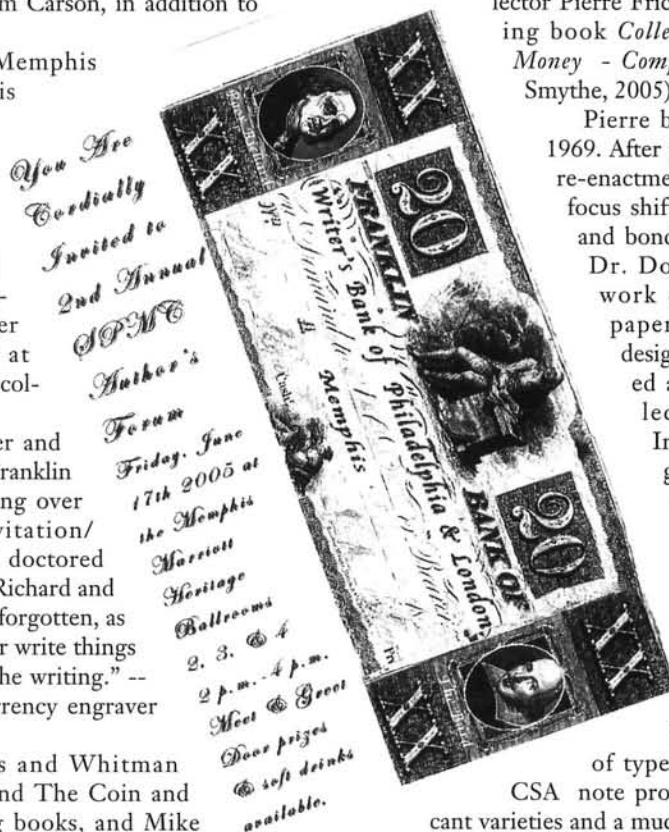 m Carson, in addition to
Memphis
is
-
er
at
col-
er and
ranklin
ng over
vitation/
doctored
Richard and
forgotten, as
r write things
he writing." --
rrency engraver
s and Whitman
nd The Coin and
g books, and Mike
You Are
Cordially
Invited to
2nd Annual
SPMC
Author's
Forum
Friday, June
17th 2005 at
the Memphis
Marriott
Heritage
Ballrooms
2, 3, & 4
2 p.m.-4 p.m.
Meet & Greet
Door prizes
& soft drinks
available.
XX
XX
20
FRANKLIN
BANK OF
(Writer's Bank of Philadelphia & London)
Memphis
20
XX
XX
lector Pierre Fric
ing book Colle
Money - Com
Smythe, 2005)
Pierre b
1969. After
re-enactme
focus shif
and bond
Dr. Do
work
paper
desig
ed a
lec
In
g
of type
CSA note pro
cant varieties and a muc